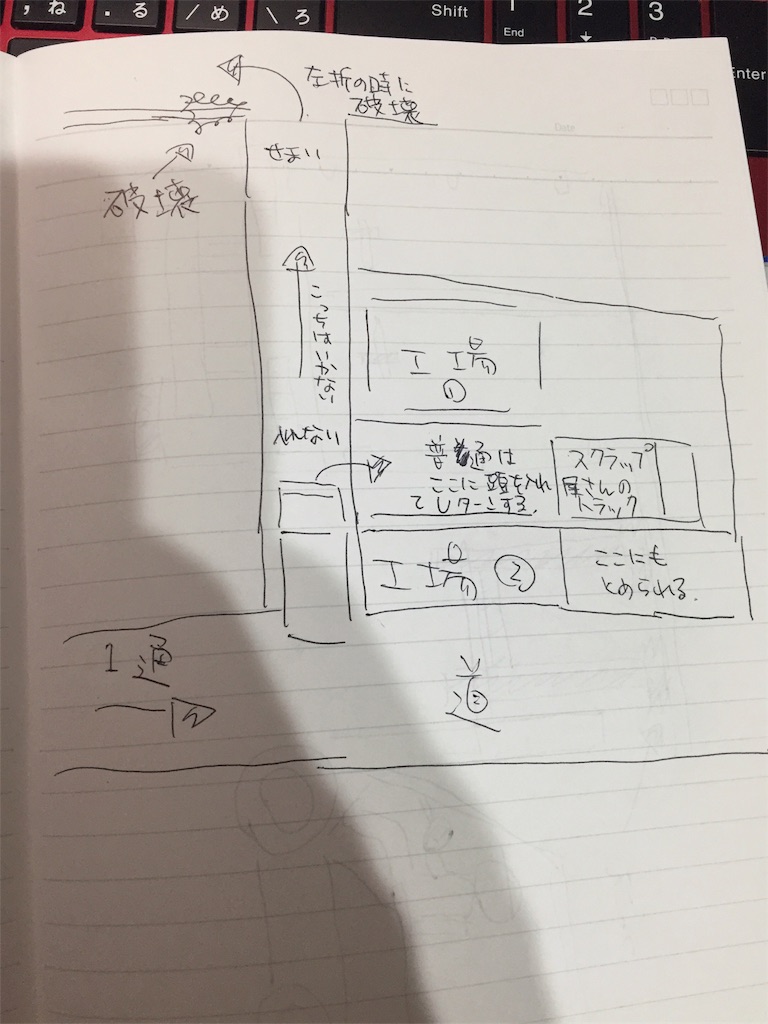 ; ね
. る
/ め
\ ろ
Shift
1
End
2
3
Enter
左折の時に
破壊
せまい
破壊
こっちはいかない
工場
①
普通は
ここに頭を入れ
てUターンする.
スクラップ
屋さんの
トラック
工場 ②
ここにも
とめられる.
1通
道